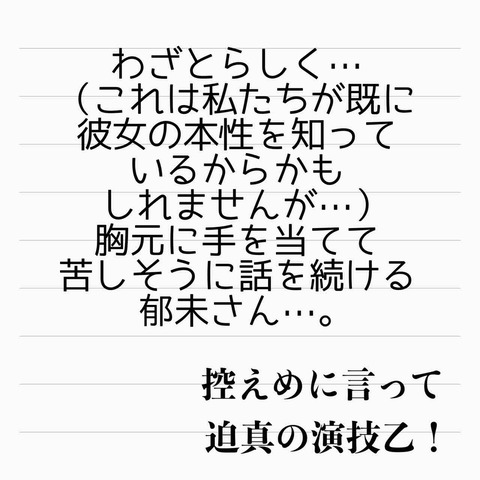 わざとらしく…
（これは私たちが既に
彼女の本性を知って
いるからかも
しれませんが…）
胸元に手を当てて
苦しそうに話を続ける
郁未さん…。
控えめに言って
迫真の演技乙！